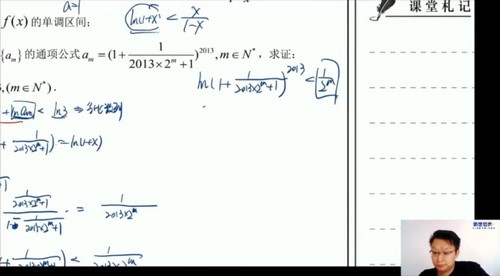 a=1
f(x) 的单调区间;
ln(1+x) < x/(1-x)
{aₘ} 的通项公式 aₘ = (1 + 1/(2013×2ᵐ+1))²⁰¹³, m∈N*, 求证:
, (m∈N*).
ln(1 + 1/(2013×2ᵐ+1))²⁰¹³ < 1/2ᵐ
< ln3 ⇒
+ 1/(2013×2ᵐ+1)) = ln(1+x)
(1/(2013×2ᵐ+1))/(1 - 1/(2013×2ᵐ+1)) = 1/(2013×2ᵐ)
+ 1/(2013×2ᵐ+1)) < 1/(2013×2ᵐ)
课堂札记